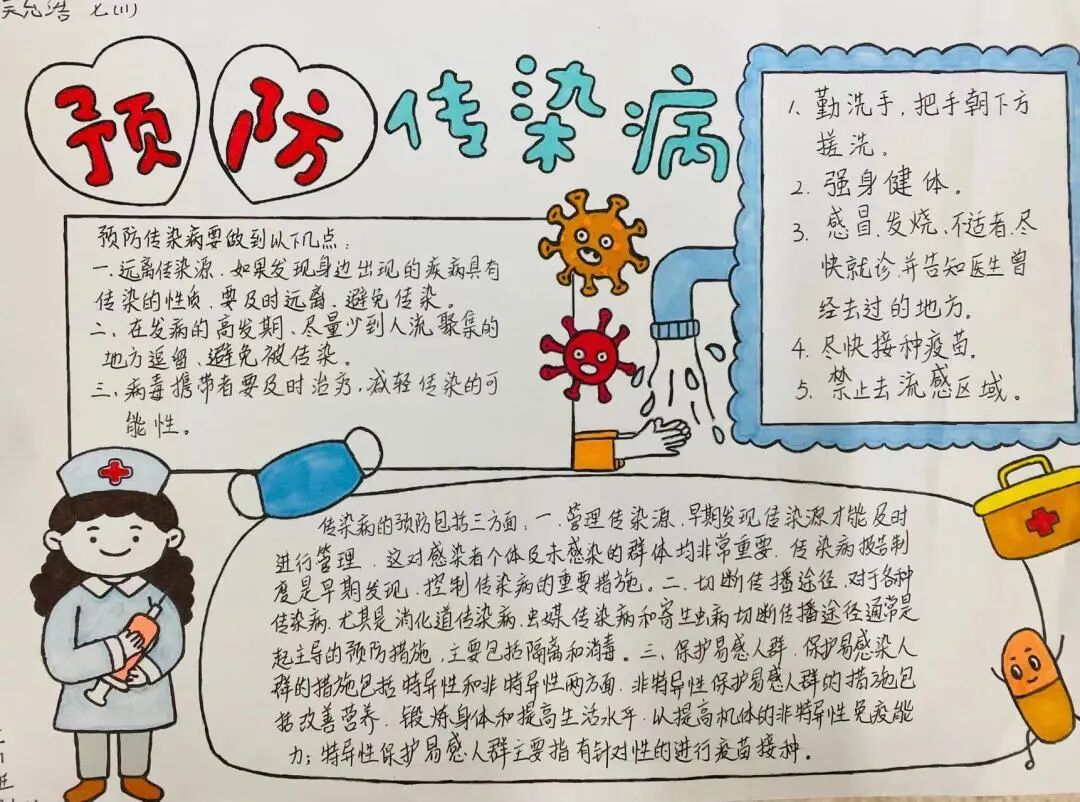 七(11)
预防传染病
预防传染病要做到以下几点:
一.远离传染源.如果发现身边出现的疾病具有
传染的性质.要及时远离.避免传染。
二、在发病的高发期、尽量少到人流聚集的
地方逗留、避免被传染。
三、病毒携带者要及时治疗,减轻传染的可
能性。
1. 勤洗手,把手朝下方
搓洗。
2. 强身健体。
3. 感冒、发烧、不适者、尽
快就诊.并告知医生曾
经去过的地方。
4. 尽快接种疫苗。
5. 禁止去流感区域。
传染病的预防包括三方面:一.管理传染源,早期发现传染源才能及时
进行管理.这对感染者个体及未感染的群体均非常重要.传染病报告制
度是早期发现、控制传染病的重要措施。二.切断传播途径.对于各种
传染病.尤其是消化道传染病.虫媒传染病和寄生虫病切断传播途径通常是
起主导的预防措施,主要包括隔离和消毒。三、保护易感人群.保护易感染人
群的措施包括特异性和非特异性两方面.非特异性保护易感人群的措施包
括改善营养.锻炼身体和提高生活水平.以提高机体的非特异性免疫能
力;特异性保护易感人群主要指有针对性的进行疫苗接种。